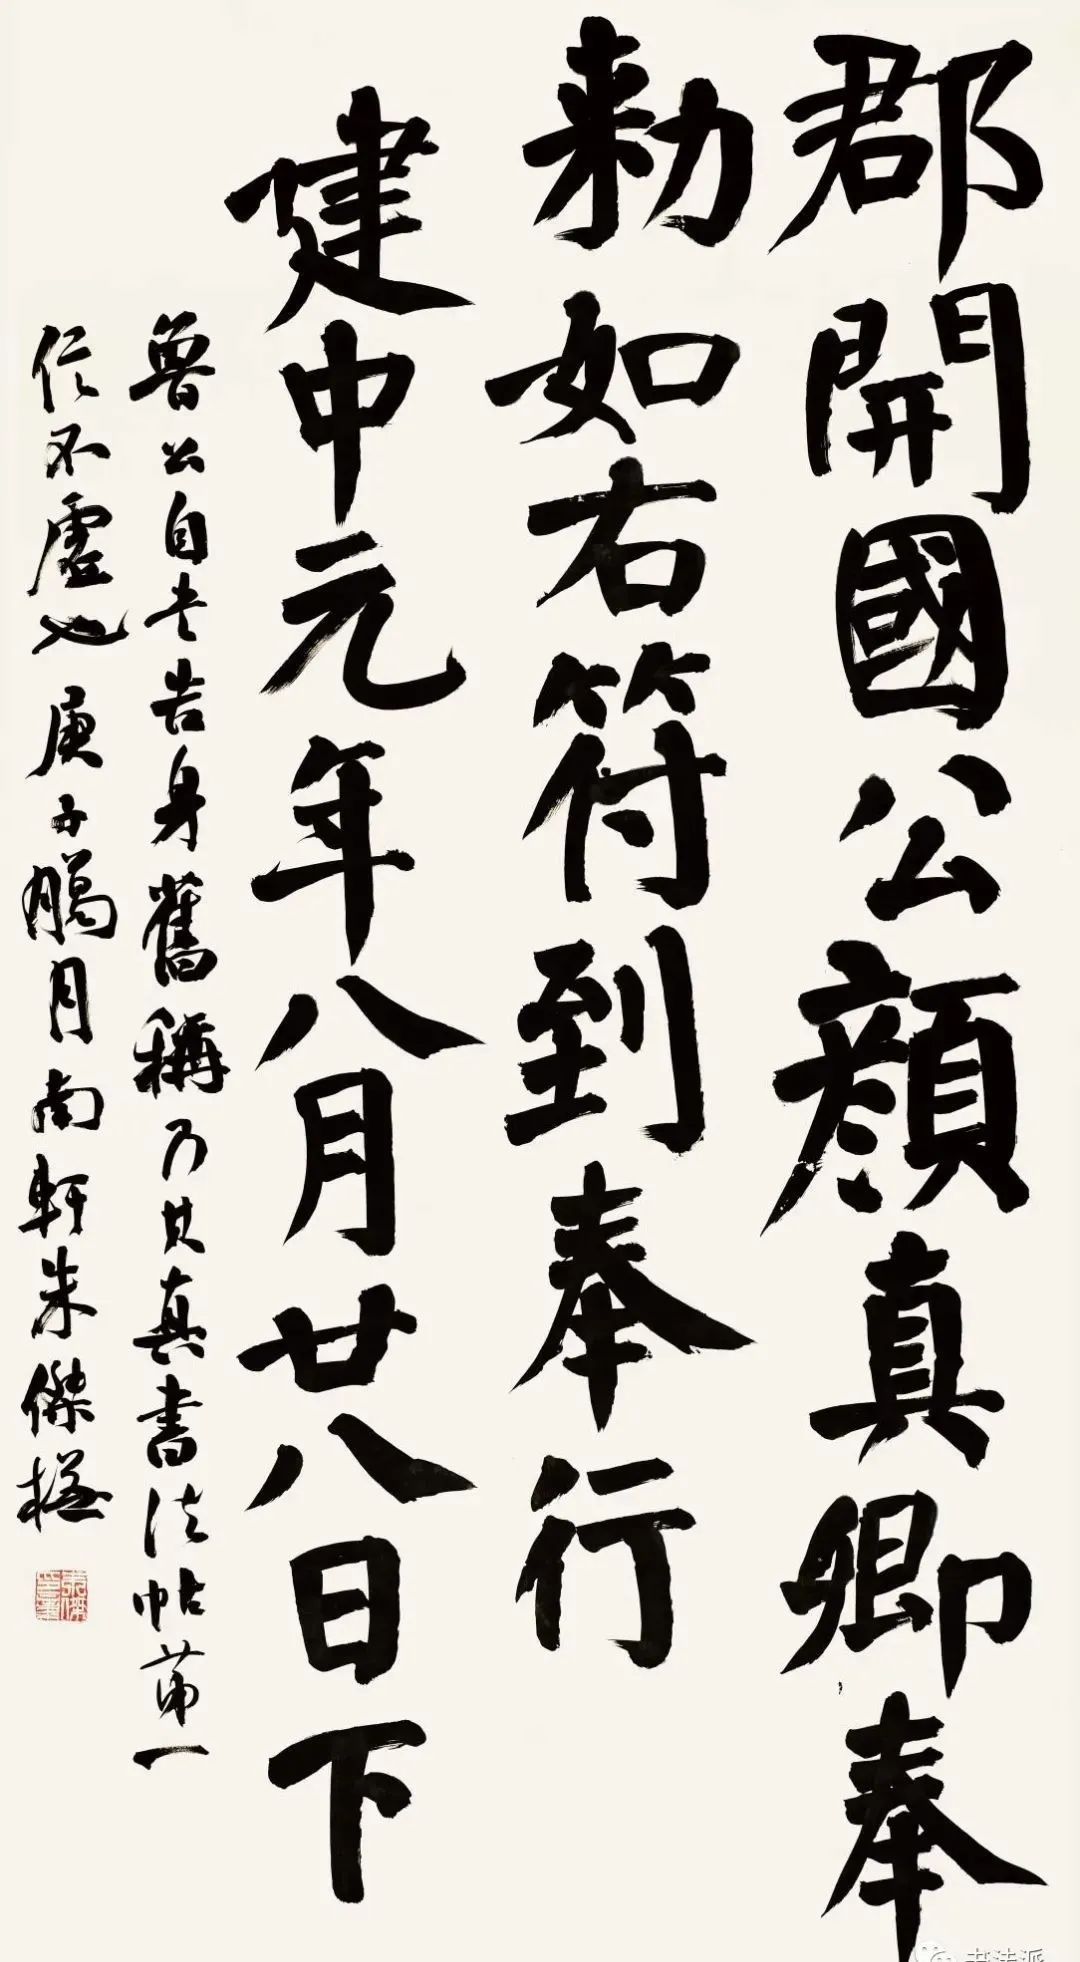 郡開國公顏真卿奉
勑如右符到奉行
建中元年八月廿八日下
魯公自书告身舊稱乃其真書法帖苐一
信不虛也庚子臈月南軒朱傑
书法派